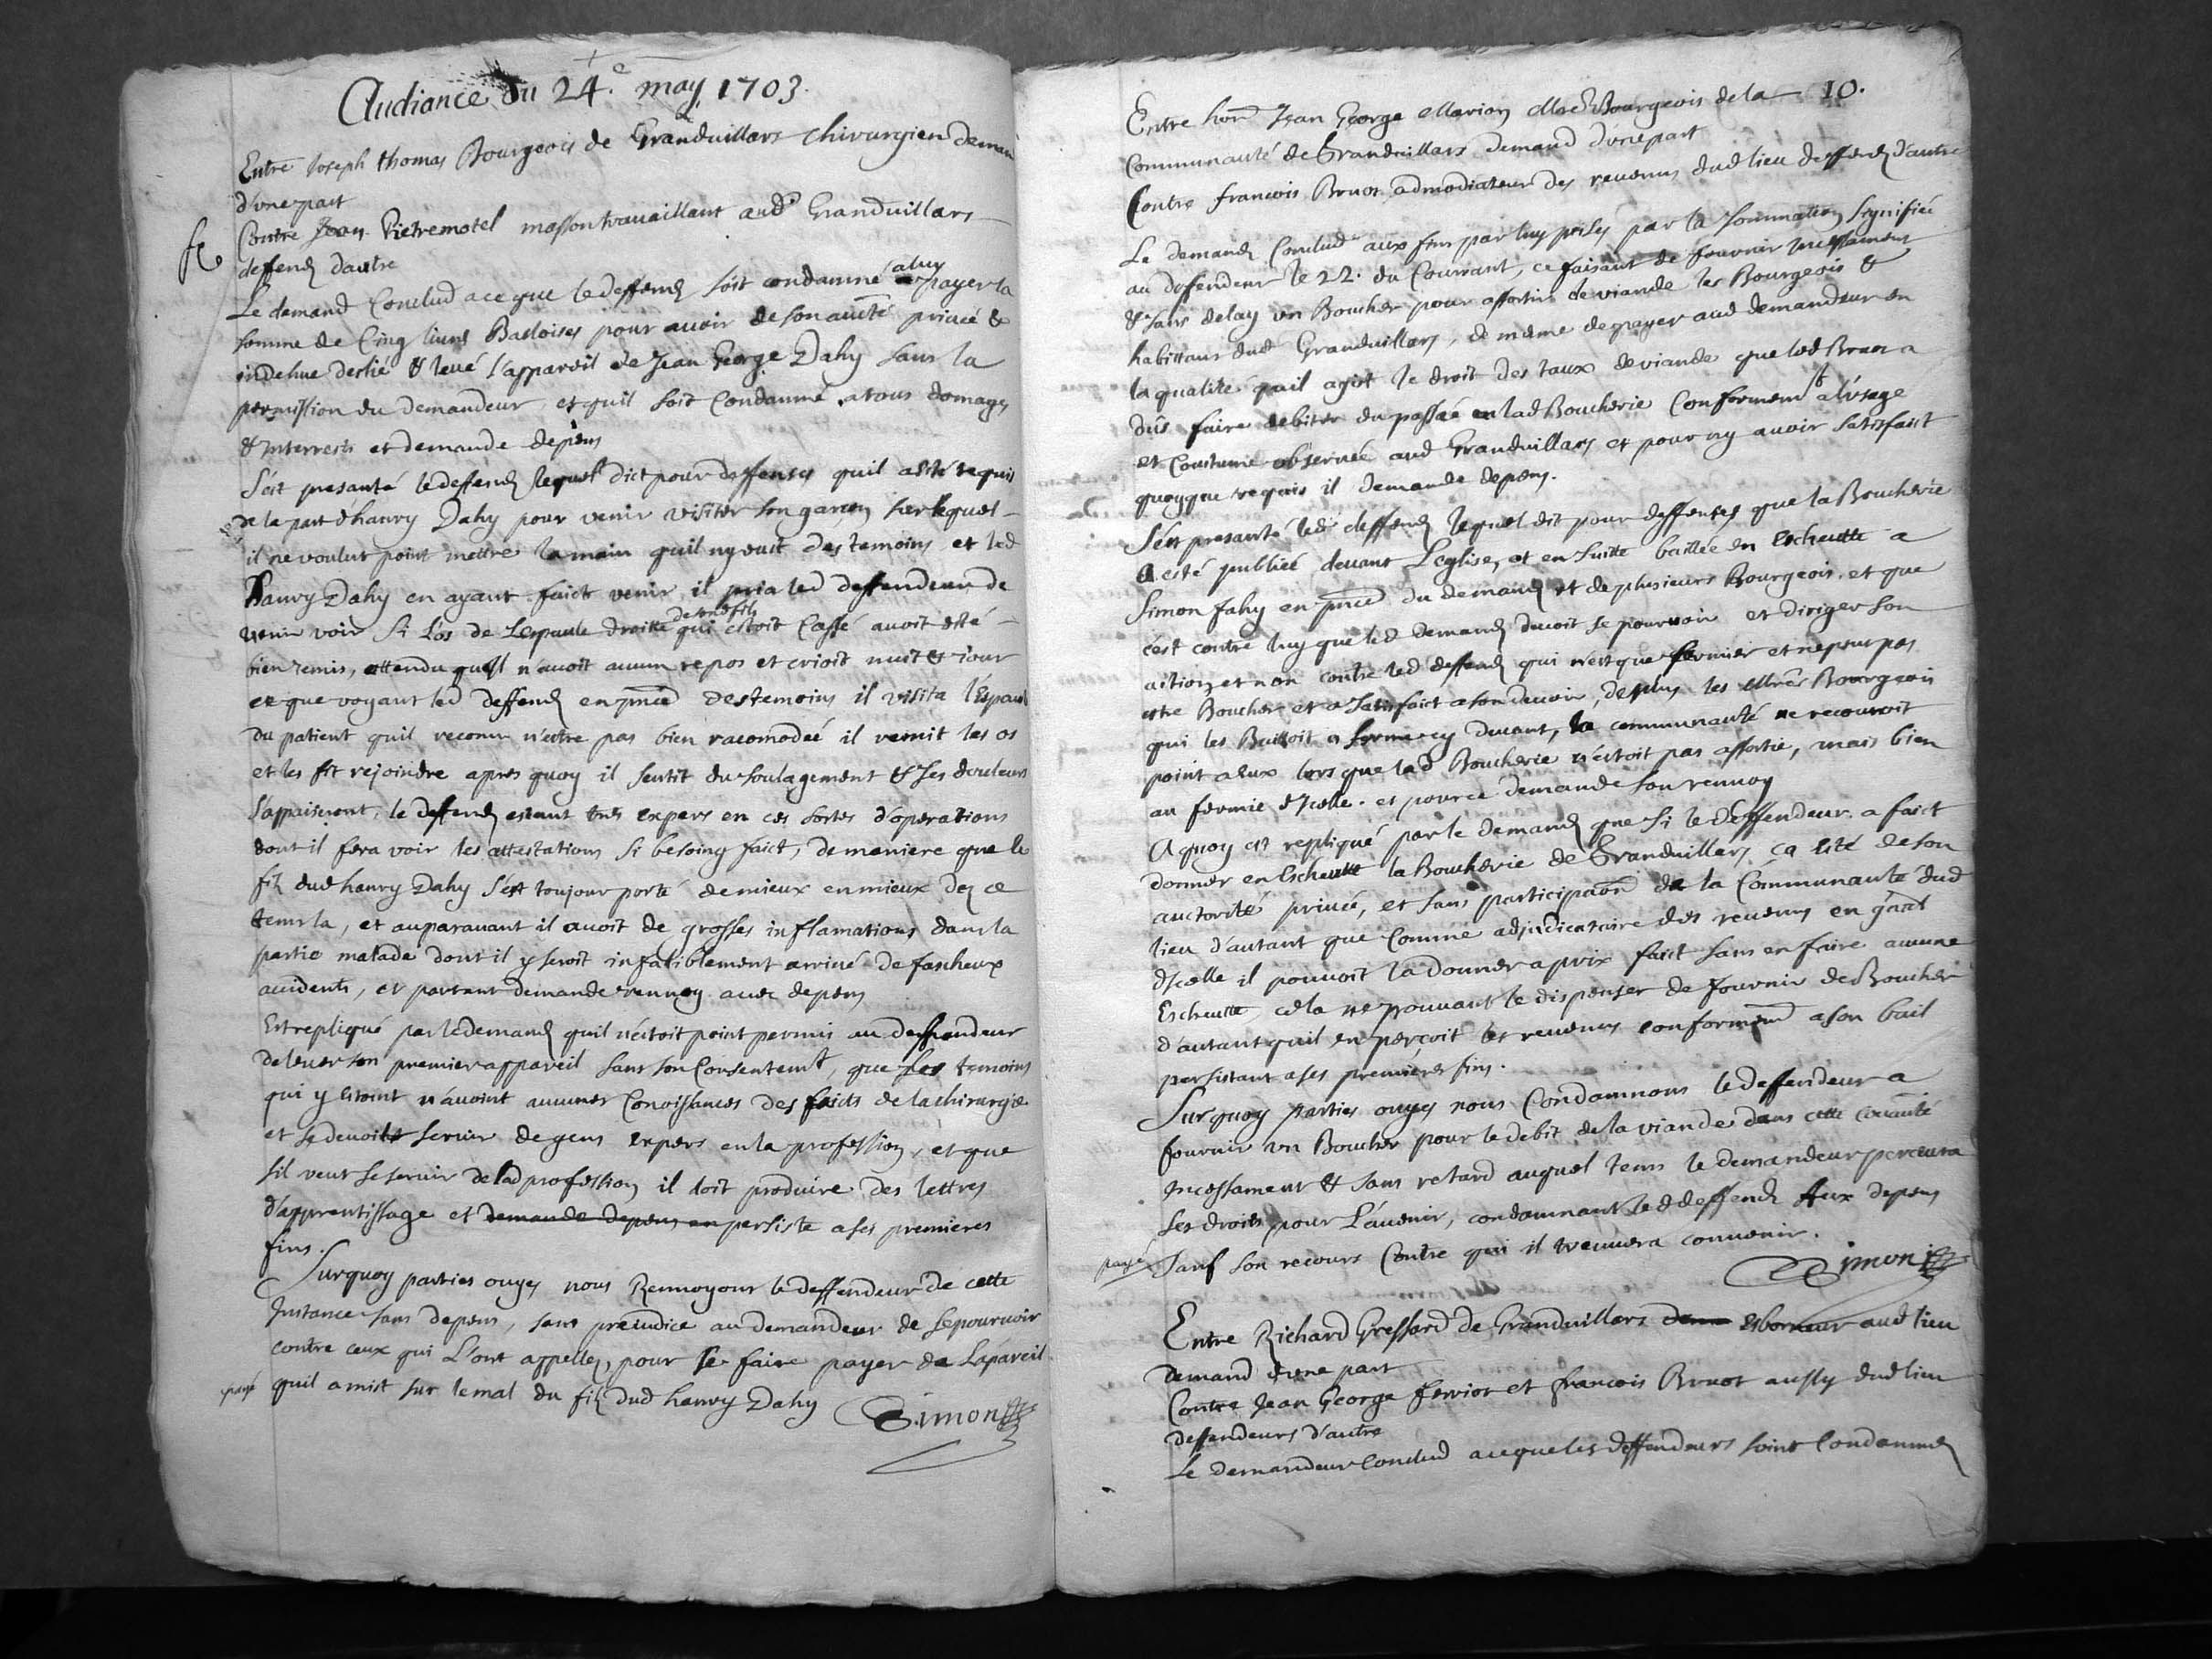 Audiance du 24.e may 1703.
Entre Joseph thomas Bourgeois de Granduillars chirurgien deman
d'vne part
Contre Jean Pietremotel masson trauaillant aud Granduillars
deffend dautre
Le demand Conclud a ce que le deffend soit condamné a luy payer la
somme de Cinq liures Basloises pour auoir de son aucté priueé &
indehue deslié & leué l'appareil de Jean George Dahy sans la
permission du demandeur et quil soit Condamné a tous domages
& Interrests et demande depens
S'est presanté le deffend lequel dict pour deffenses quil a esté requis
de la part d'hanry Dahy pour venir visiter son garçon sur lequel
il ne voulut point mettre la main quil ny eust des temoins et led
hanry Dahy en ayant faict venir il pria led deffendeur de
venir voir si l'os de Lespaule droitte de sond fils qui estoit Cassé auoit esté
bien remis, attendu quil n'auoit aucun repos et crioit nuit & jour
et que voyant led deffend en pnce des temoins il visita l'Espaul
du patient quil reconu n'estre pas bien racomodeé il remit les os
et les fit rejoindre apres quoy il sentit du soulagement & ses douleurs
s'appaiserent, le deffend estant tres expers en ces sortes d'operations
dont il fera voir les attestations si besoing faict, de maniere que le
fils dud hanry Dahy s'est toujour porté de mieux en mieux dez ce
tems la, et auparauant il auoit de grosses inflamations dans la
partie malade dont il y seroit infaliblement arriué de fascheux
accidents, et partant demande renuoy auec depens
Est repliqué par le demand quil n'estoit point permis au deffendeur
de leuer son premier appareil sans son Consentemt, que les temoins
qui y estoint n'auoint aucunes Conoissances des faicts de la chirurgie
et se deuoit seruir de gens expers en la profession, et que
sil veut se seruir de lad profession il doit produire des lettres
d'apprentissage et demande depens en persiste a ses premieres
fins.
Surquoy parties ouyes nous Renuoyons le deffendeur de cette
Instance sans depens, sans prejudice au demandeur de se pouruoir
contre ceux qui L'ont appellez, pour se faire payer de Lapareil
payé quil a mist sur le mal du fils dud hanry Dahy
Simon
10.
Entre hon Jean George Marion Mre Bourgeois de la
Communauté de Granduillars demand d'vne part
Contre francois Bruot admodiateur des reuenus dud lieu deffend d'autre
Le demand Conclud aux fins par luy prises par la sommation signifieé
au deffendeur le 22. du Courrant, ce faisant de fournir incessament
& sans delay vn Boucher pour assortir de viande les Bourgeois &
habittans dud Granduillars, de méme de payer aud demandeur en
la qualité quil agist le droit des taux de viande que led Bruot a
dûs faire debiter du passé en lad Boucherie Conformemt a l'vsage
et Coustume obserueé aud Granduillars et pour ny auoir satisfaict
quoy que requis il demande depens.
S'est presanté led deffend lequel dit pour deffenses que la Boucherie
a esté publieé deuant L'eglise, et en suitte bailleé en escheutte a
Simon fahy en pnce du demand et de plusieurs Bourgeois, et que
c'est contre luy que led demand deuoit se pouruoir et diriger son
action, et non contre led deffend qui n'est que fermier et ne peut pas
estre Boucher et a satisfaict a son deuoir, de plus les Mres Bourgeois
qui les Bailloit a ferme cy deuant, la communauté ne recouroit
point a eux lors que lad Boucherie n'estoit pas assortie, mais bien
au fermie d'Icelle. et pource demande son renuoy
A quoy est repliqué par le demand que si le deffendeur a faict
donner en Escheutte la Boucherie de Granduillars, ça esté de son
auctorité priueé, et sans participaon de la Communauté dud
lieu d'autant que Comme adjudicataire des reuenus en gnal
d'Icelle il pouuoit la donner a prix faict sans en faire aucune
Escheutte, cela ne pouuant le dispenser de fournir de Boucher
d'autant quil en perçoit les reuenus conformemt a son bail
persistant a ses premieres fins.
Surquoy parties ouyes nous Condamnons le deffendeur a
fournir vn Boucher pour le debit de la viande dans cette Comauté
Incessament & sans retard auquel tems le demandeur perceura
ses droits pour L'auenir, condamnant led deffend Aux depens
payé sauf son recours Contre qui il trouuera conuenir.
Simon
Entre Richard Gressard de Granduillars esborneur aud lieu
demand d'vne part
Contre Jean George feriot et francois Bruot aussy dud lieu
deffendeurs d'autre
Le demandeur Conclud a ce que les deffendeurs soint Condamnez